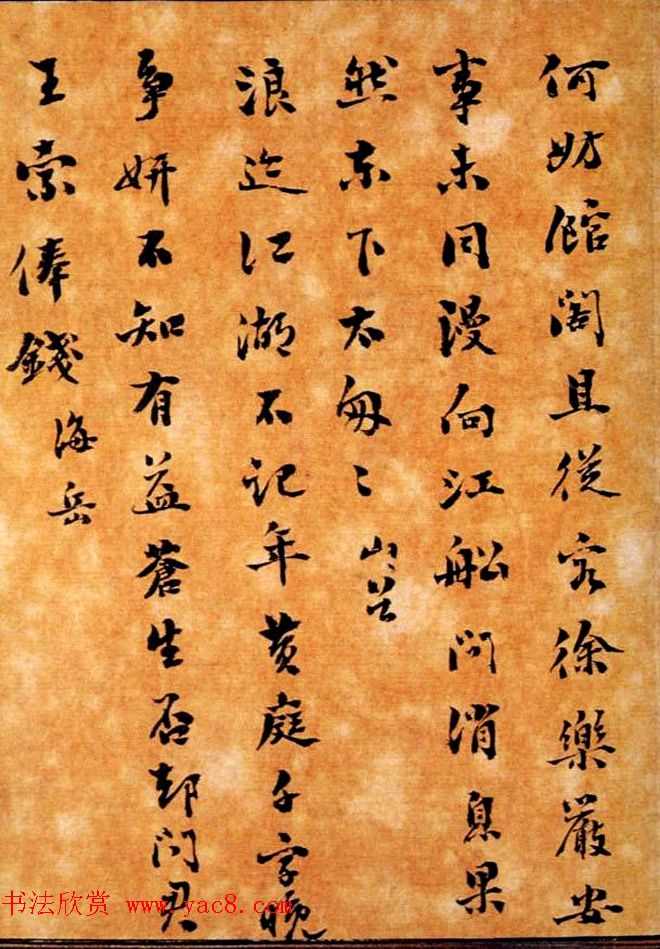 何妨館閣且從容徐樂嚴安
事未同漫向江船問消息果
然東下太匆〻山谷
浪迹江湖不記年黄庭千字晚
争妍不知有益蒼生否却问君
王索俸錢海岳
书法欣赏 www.yac8.com